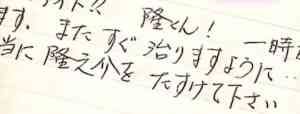 イト!!
ます. またすぐ 隆くん! 一時
治りますように…
当に 隆之介を たすけて下さい